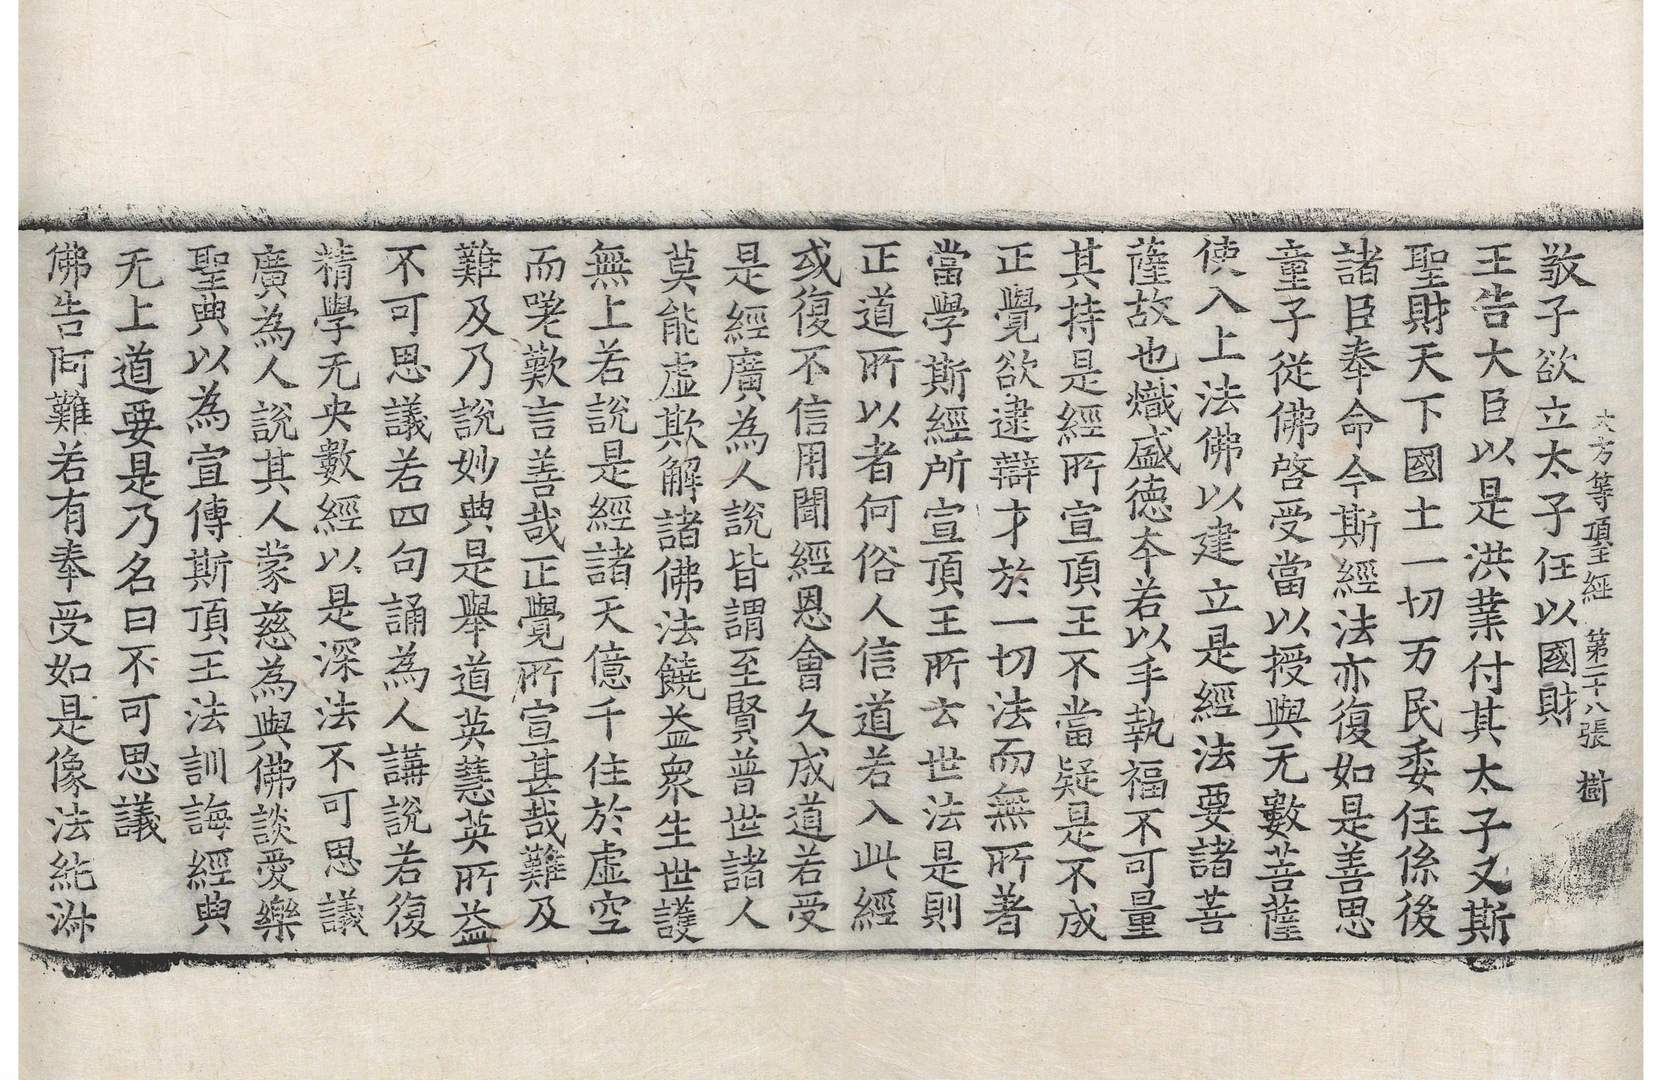 大方等頂王經 第二十八張 樹
敬子欲立太子任以國財
王告大臣以是洪業付其太子又斯
聖財天下國土一切万民委任係後
諸臣奉命今斯經法亦復如是善思
童子從佛啓受當以授與无數菩薩
使入上法佛以建立是經法要諸菩
薩故也熾盛德本若以手執福不可量
其持是經所宣頂王不當疑是不成
正覺欲逮辯才於一切法而無所著
當學斯經所宣頂王所云世法是則
正道所以者何俗人信道若入此經
或復不信用聞經恩會久成道若受
是經廣為人說皆謂至賢普世諸人
莫能虛欺解諸佛法饒益衆生世護
無上若說是經諸天億千住於虛空
而嗟歎言善哉正覺所宣甚哉難及
難及乃說妙典是舉道英慧英所益
不可思議若四句誦為人講說若復
精學无央數經以是深法不可思議
廣為人說其人蒙慈為與佛談愛樂
聖典以為宣傳斯頂王法訓誨經典
无上道要是乃名曰不可思議
佛告阿難若有奉受如是像法純淑